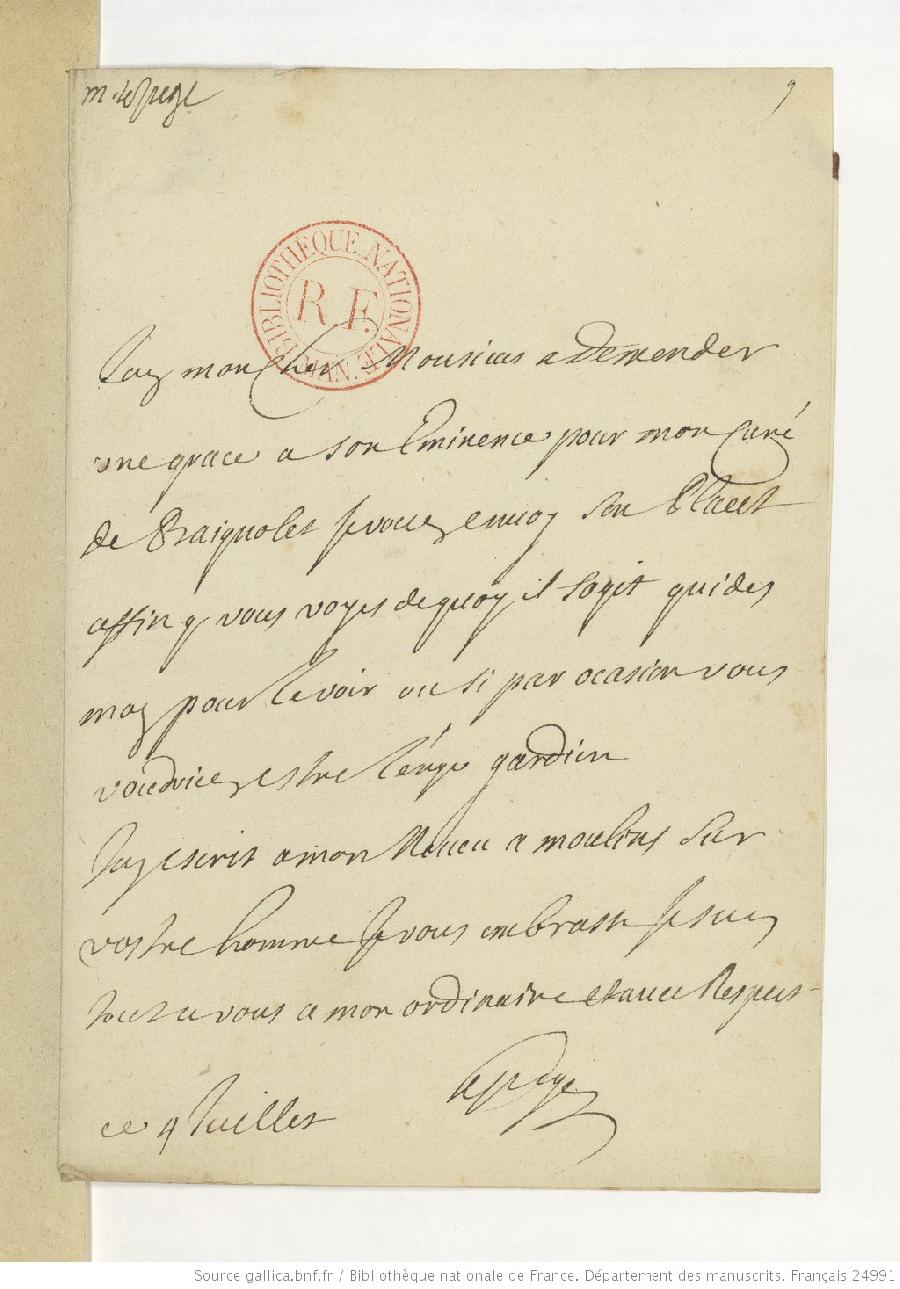 m. lepege
9
BIBLIOTHÈQUE NATIONALE MAN.
R.F.
Jay mon cher Monsieur a Demender
une grace a son Eminence pour mon Curé
de Baignolet Je vous envoy son Placet
affin q vous voyes de quoy il sagit guides
moy pour le voir ou si par ocasion vous
voudriez estre l'enge gardien
Jay escrit a mon Neveu a moulins sur
vostre homme Je vous embrasse Je suis
tout a vous a mon ordinaire et avec Respect
lepege
ce 4 Juillet
Source gallica.bnf.fr / Bibliothèque nationale de France. Département des manuscrits. Français 24991